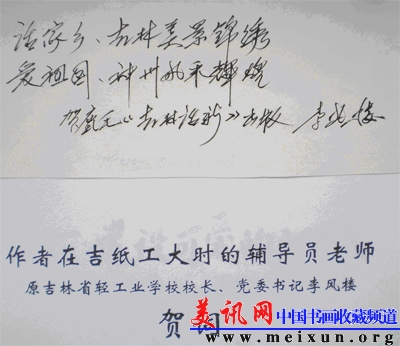 话家乡、吉林美景锦绣
爱祖国、神州风采辉煌
贺 《吉林话新》出版 李风楼
作者在吉纸工大时的辅导员老师
原吉林省轻工业学校校长、党委书记李风楼
贺词
美讯网 中国书画收藏频道
www.meixun.org